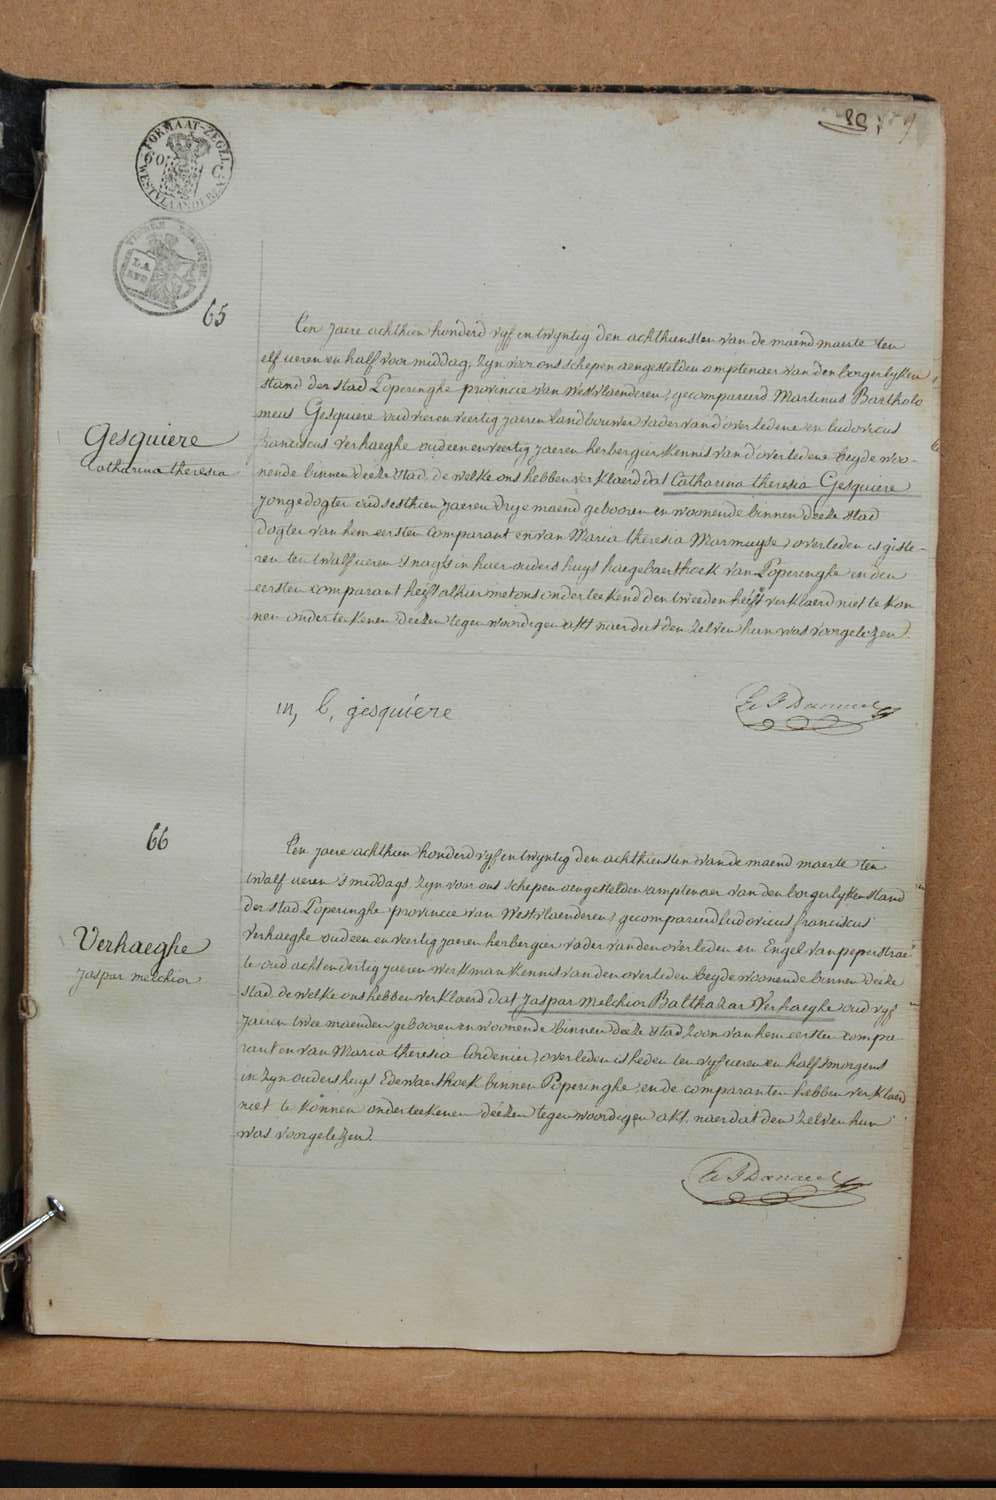 80
FORMAAT-ZEGEL
WESTVLAANDEREN
65
Gesquiere
Catharina theresia
Een jaere achthien honderd vyf en twyntig den achthiensten van de maend maerte ten
elf ueren en half voor middag, Zyn voor ons schepen aengestelden amptenaer van den borgerlyken
stand der stad Poperinghe provincie van Westvlaenderen, gecompareerd Martinus Bartholo
meus Gesquiere oud vier en veertig jaeren landbouwer vader van d'overledene en ludovicus
franciscus Verhaeghe oud een en veertig jaeren herbergier Kennis van d'overledene beyde woo-
nende binnen deeze stad, de welke ons hebben verklaerd dat Catharina theresia Gesquiere
jonge dogter oud sesthien jaeren drye maend gebooren en woonende binnen deeze stad
dogter van hem eersten Comparant en van Maria theresia Marmuyse, overleden is giste-
ren ten twalf ueren s nagts in haer ouders huys haegebaerthoek van Poperinghe en den
eersten comparant heeft alhier met ons onderteekend den tweeden heeft verklaerd niet te kon
nen onderteekenen deezen tegenwoordigen akt naer dat den zelven hun was voorgelezen.
m, b, gesquiere
66
Verhaeghe
jaspar melchior
Een jaere achthien honderd vyf en twyntig den achthiensten van de maend maerte ten
twalf ueren 's middags, Zyn voor ons schepen aengestelden amptenaer van den borgerlyken stand
der stad Poperinghe provincie van Westvlaenderen, gecompareerd ludovicus franciscus
Verhaeghe oud een en veertig jaeren herbergier vader van den overleden en Engel van peperstrae
te oud acht en dertig jaeren werkman Kennis van den overleden beyde woonende binnen deeze
stad, de welke ons hebben verklaerd dat Jaspar Melchior Balthazar Verhaeghe oud vyf
jaeren twee maenden gebooren en woonende binnen deeze stad zoon van hem eersten compa-
rant en van Maria theresia Cordenier, overleden is heden ten vyf ueren en half s morgens
in zyn ouders huys Edewaerthoek binnen Poperinghe, en de comparanten hebben verklaerd
niet te können onderteekenen deezen tegenwoordigen akt, naer dat den zelven hun
was voorgelezen.